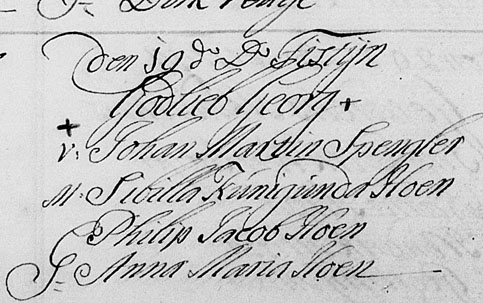 den 19 do Do Fistijn
Godlieb Georg +
+
v: Johan Martin Spengler
M: Sibilla Kunigunda Hoen
Philip Jacob Hoen
G: Anna Maria Hoen